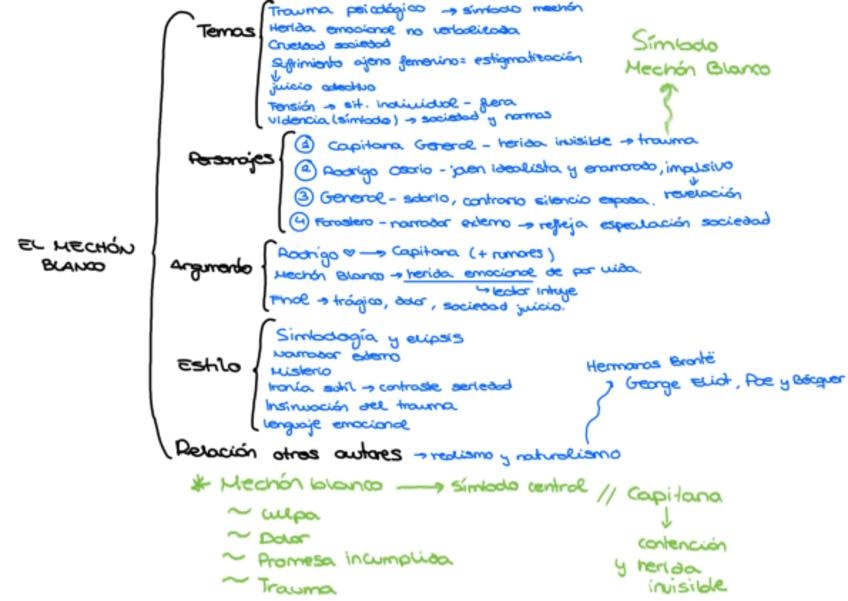 EL MECHÓN BLANCO
Temas
Trauma psicológico → símbolo mechón
Herida emocional no verbalizada
Crueldad sociedad
Sufrimiento ajeno femenino = estigmatización
↓
juicio colectivo
Tensión → sit. individual - fuera
Violencia (símbolo) → sociedad y normas
Símbolo
Mechón Blanco
Personajes
① Capitana General - herida invisible → trauma
② Rodrigo Osorio - joven idealista y enamorado, impulsivo
③ General - sobrio, contrario silencio esposa. revelación
④ Forastero - narrador externo → refleja especulación sociedad
Argumento
Rodrigo ♡ → Capitana (+ rumores)
Mechón Blanco → herida emocional de por vida.
↳ lector intuye
Final → trágico, dolor, sociedad juicio.
Estilo
Simbología y elipsis
Narrador externo
Misterio
Ironía sutil → contraste seriedad
Insinuación del trauma
Lenguaje emocional
Hermanas Brontë
George Eliot, Poe y Bécquer
Relación otros autores → realismo y naturalismo
* Mechón blanco → símbolo central // Capitana
~ Culpa
~ Dolor
~ Promesa incumplida
~ Trauma
↓
contención
y herida
invisible